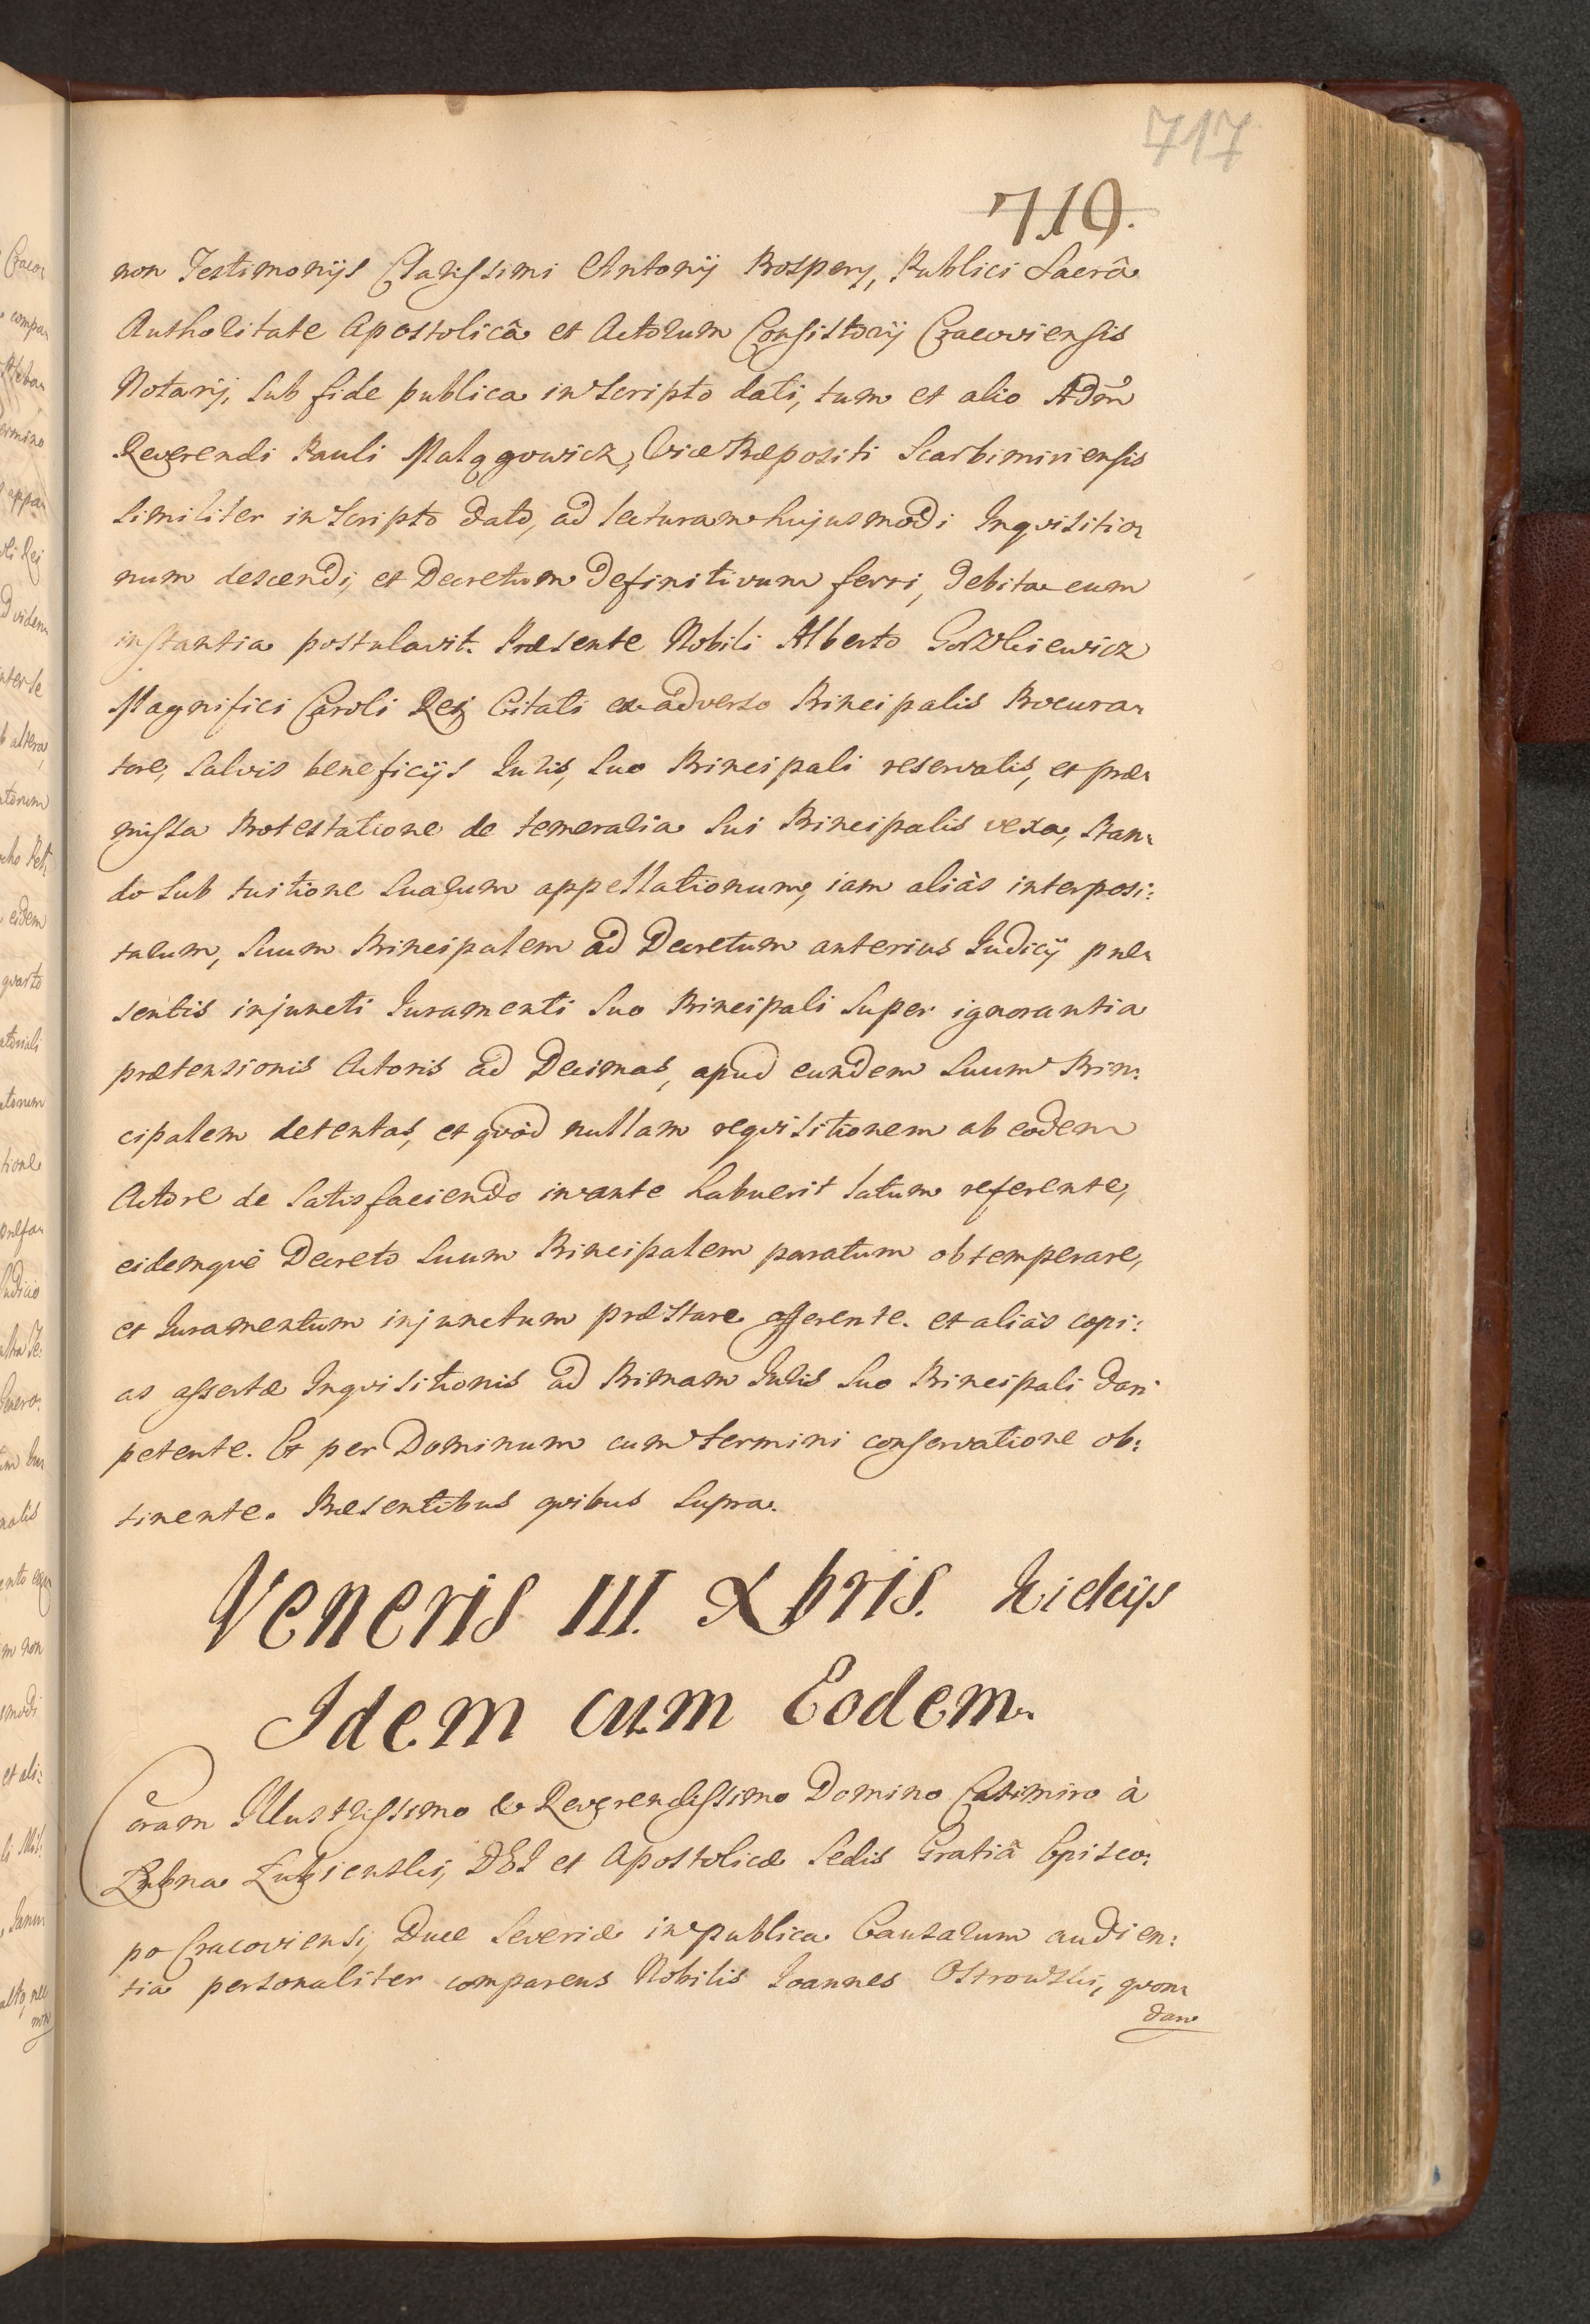 717
719.
non Testimonijs Clarissimi Antonij Prospery, Publici Sacrâ
Authoritate Apostolicâ et Actorum Consistorij Cracoviensis
Notarij, sub fide publica in Scripto dati, tum et alio Adm̃
Reverendi Pauli Małągowicz, Vice Præpositi Scarbimiriensis
similiter in Scripto dato, ad lecturam hujusmodi Inqvisitio-
num descendi, et Decretum Definitivum ferri, debita cum
instantia postulavit. Præsente Nobili Alberto Gorzkiewicz
Magnifici Caroli Rej Citati ex adverso Principalis Procura-
tore, salvis beneficijs Iuris, suo Principali reservatis, et præ-
missa Protestatione de temeraria sui Principalis vexa, stan-
do sub tuitione suarum appellationum, iam aliàs interposi:
tarum, suum Principalem ad Decretum anterius Iudicij præ-
sentis injuncti Iuramenti suo Principali super ignorantia
prætensionis Actoris ad Decimas, apud eundem suum Prin:
cipalem detentas, et qvòd nullam reqvisitionem ab eodem
Actore de satisfaciendo in ante habuerit latum referente,
eidemqvè Decreto suum Principalem paratum obtemperare,
et Iuramentum injunctum præstare offerente. et aliàs copi:
as assertæ Inqvisitionis ad Primam Iuris suo Principali dari
petente. Et per Dominum cum termini conservatione ob:
tinente. Præsentibus qvibus supra.
Veneris III. Xbris. Kielcijs
Idem cum Eodem.
Coram Illustrissimo & Reverendissimo Domino Casimiro à
Łubna Łubienski, DEI et Apostolicæ Sedis Gratiâ Episco:
po Cracoviensi, Duce Severiæ in publica Causarum audien:
tia personaliter comparens Nobilis Ioannes Ostrowski, qvon-
dam